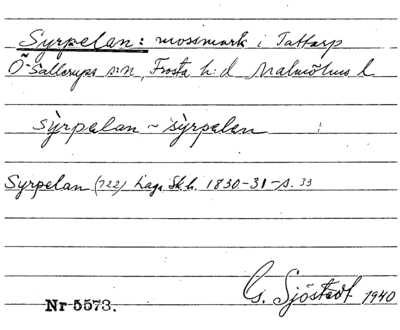 Syrpelan: mossmark i Tattarp
Ö-Sallerups s:n, Frosta h:d Malmöhus l
sỳrpelan ~ sỳrpelan
Syrpelan (722) Laga Sk.h. 1830-31-s. 33
Nr 5573.
G. Sjöstedt 1940